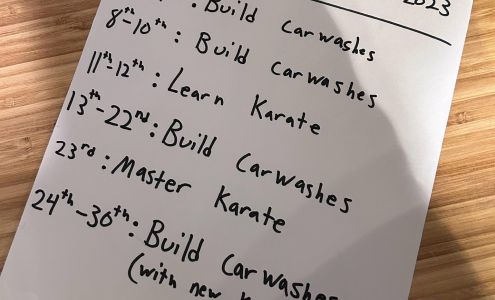 2023
: Build Carwashes
8th-10th: Build Carwashes
11th-12th: Learn Karate
13th-22nd: Build Carwashes
23rd: Master Karate
24th-30th: Build Carwashes
(with new